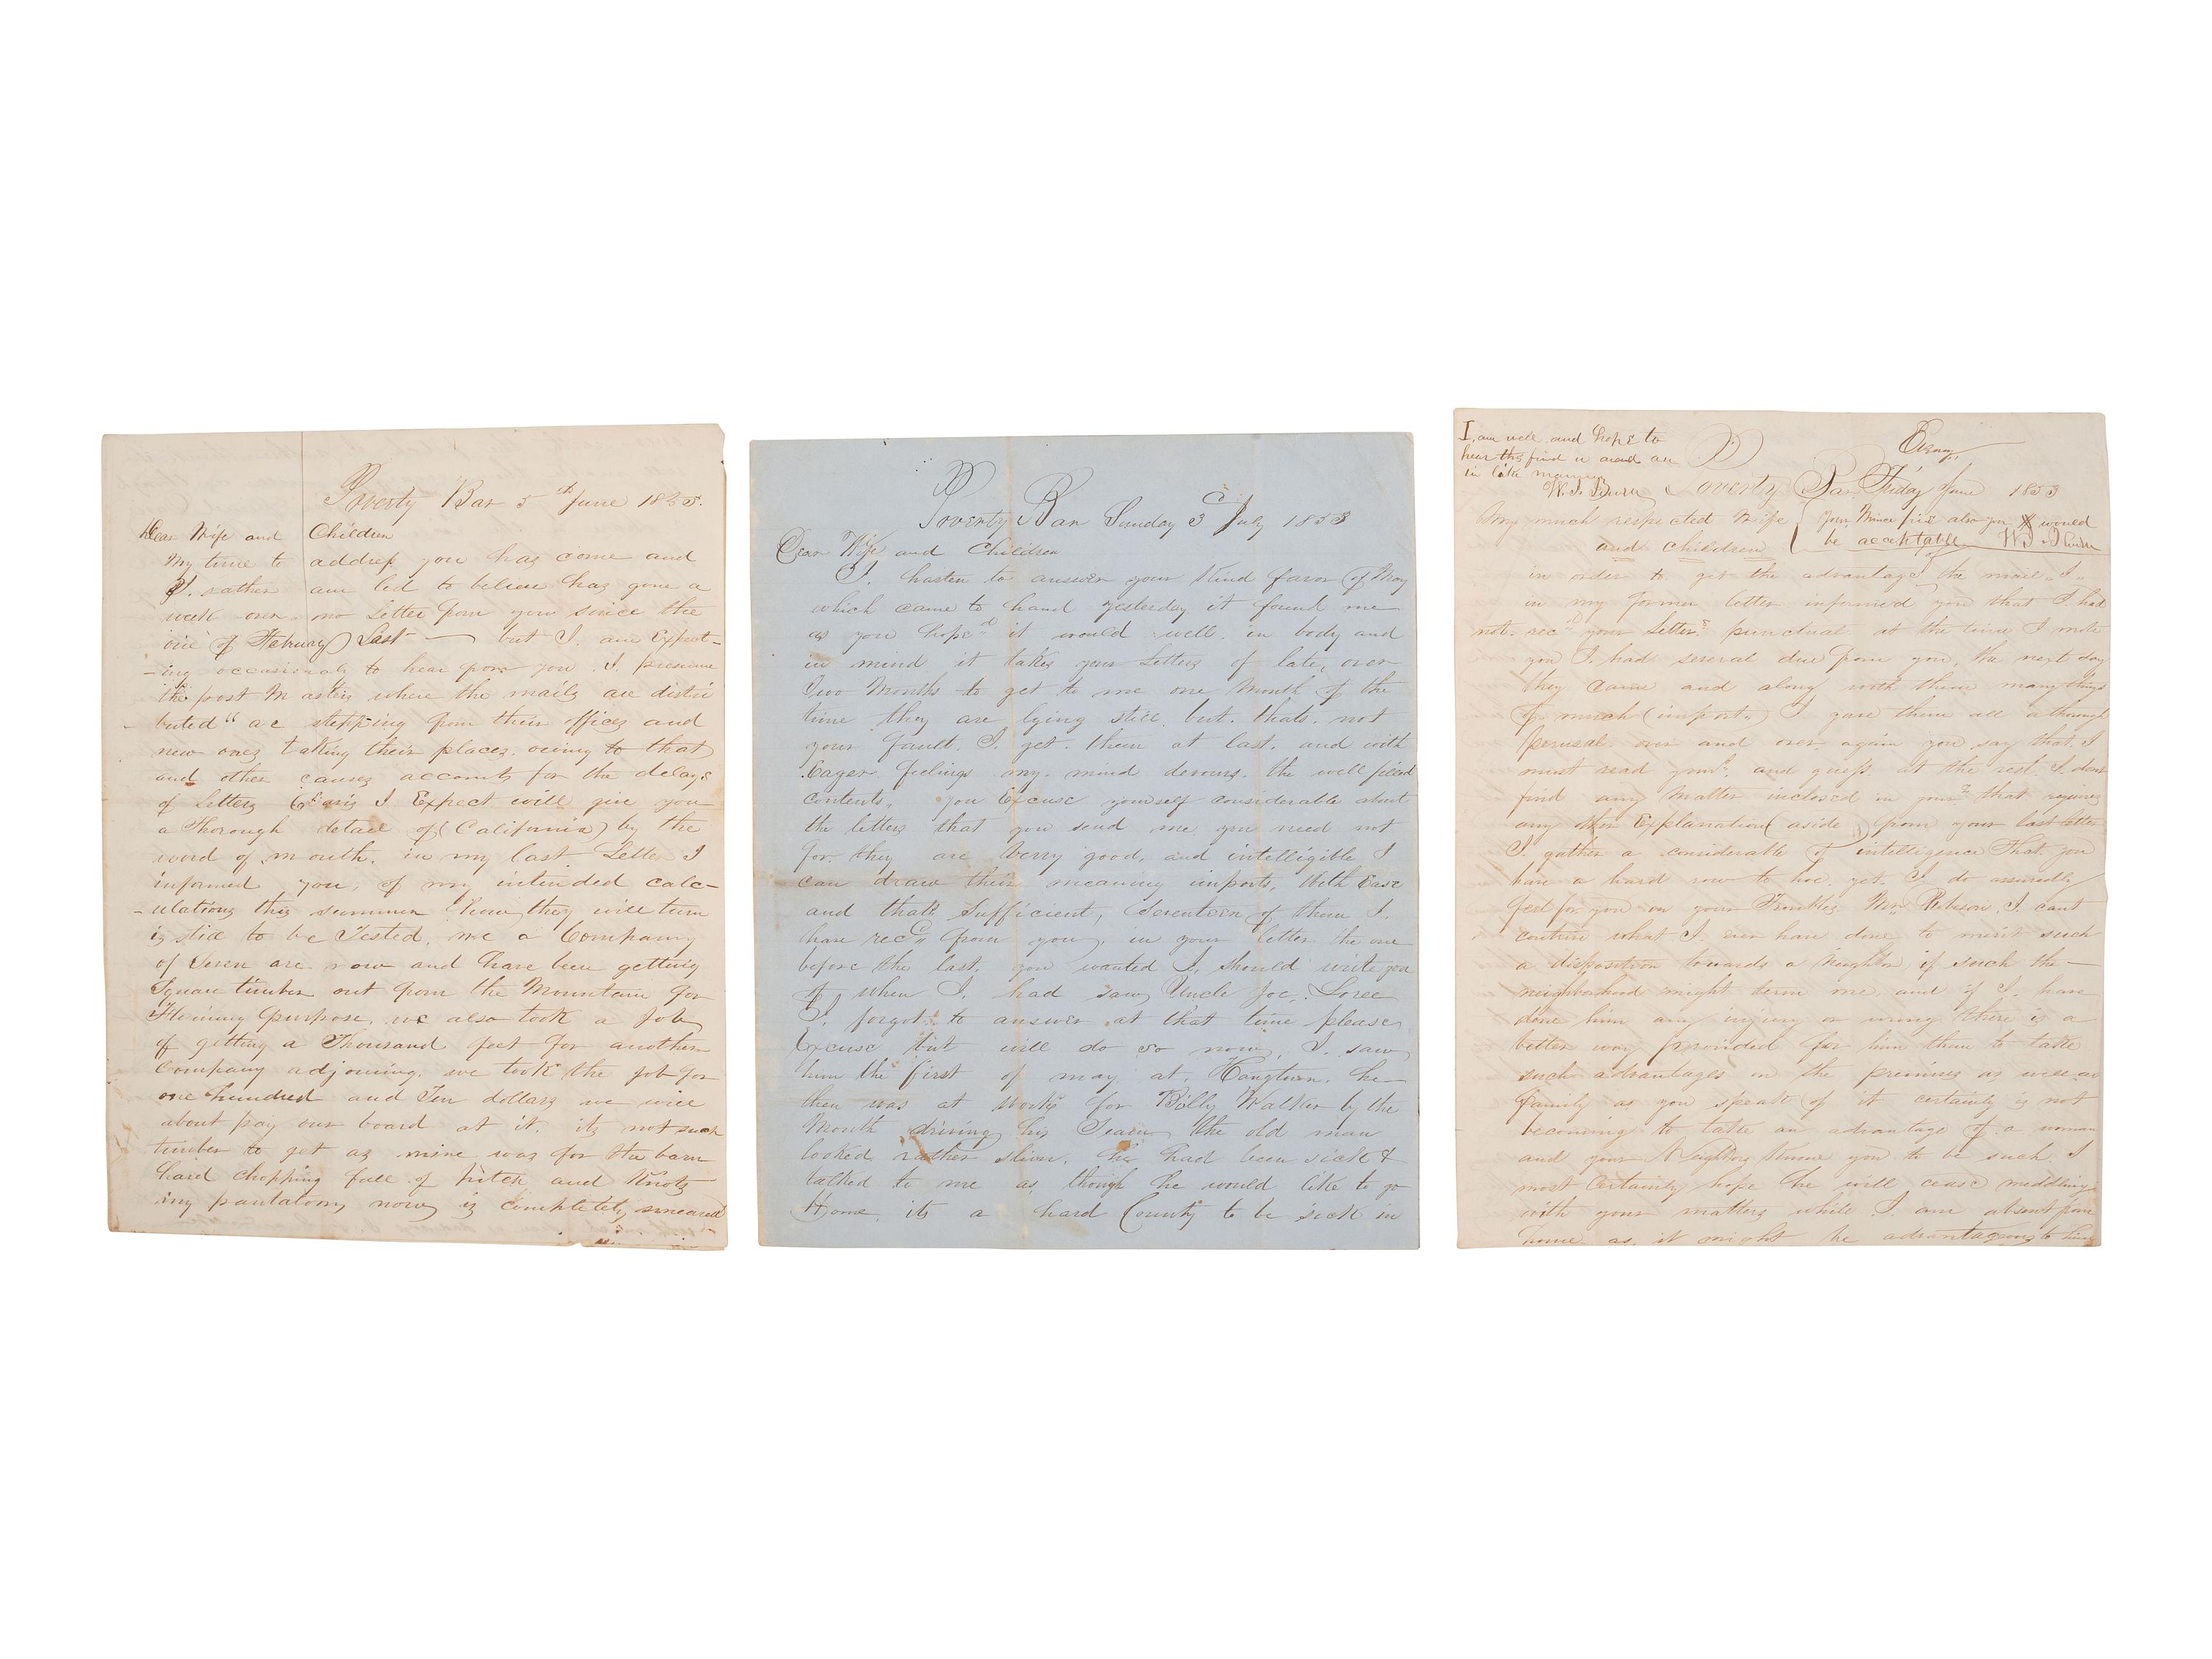 Poverty Bar 5th June 1853.
Dear Wife and Children
My time to address you has come and
I. rather am led to believe has gone a
week over no Letter from you since the
one of Febuary Last — but I. am Expect-
-ing occasionaly to hear from you. I. presume
the post Masters where the mails are distri
buted are stepping from their offices and
new ones taking their places. owing to that
and other causes accounts for the delays
of Letters I Expect will give you
a Thorough detail of (California) by the
word of mouth. in my last Letter I
informed you, of my intended calc-
-ulations this summer how they will turn
is still to be Tested. we a Company
of Seven are now and have been getting
Square timber out from the Mountain for
Fluming purpose. we also took a Job
of getting a Thousand feet for another
Company adjoining. we took the job for
one hundred and Ten dollars we will
about pay our board at it. its not such
timber to get as mine was for the barn
hard chopping full of pitch and Knots
my pantaloons now is completely smeared
Poverty Bar Sunday 3d July 1853
Dear Wife and Children
I. hasten to answer your kind favor of May
which came to hand yesterday it found me
as you hope'd it would well. in body and
in mind it takes your Letters of late, over
Two Months to get to me one Month of the
time they are lying still. but. thats. not
your fault. I. get. them at last. and with
Eager. feelings my. mind devours. the well filled
contents. you Excuse yourself considerable about
the letters that you send me, you need not
for. they are Verry good, and intelligible I
can draw their meaning imports, With Ease
and thats Sufficient, Seventeen of them I.
have recd from you, in your letter the one
before the last. you wanted I. should write you
of when I. had saw Uncle Joe. Loree
I. forgot to answer at that time please
Excuse but will do so now, I. saw
him the first of may at. Hangtown. he
then was at work for Billy Walker by the
Month driving his Team the old man
looked rather slim. he had been sick &
talked to me as though he would like to go
Home, its a hard County to be sick in
I, am well and hope to
hear this find u and all
in like manner
W. I.
Poverty Bar Friday June 1853
My much respected Wife
and children
your also you would
be acceptable W. I.
in order to get the advantage of the mail "I"
in my former letter informed you that I had
not. recd your Letters punctual at the time I wrote
you I. had several due from you, the next day
they came and along with them many things
of much (import") I gave them all a thorough
perusal. over and over again you say that. I
must read and guess at the rest. I. dont
find any Matter inclosed in that requires
any other Explanation (aside) from your last letter
I. gather a considerable of intelligence That you
have a hard row to hoe. yet. I. do assuredly
feel for you on your Troubles Wm I. cant
what I. ever have done to merit such
a disposition towards a Neighbor if such the —
neighborhood might term me. and if I. have
done him any injury or wrong there is a
better way provided for him than to take
such advantages on the premises as well as
family as you speak of it certainly is not
becoming to take an advantage of a woman
and your Neighbors Know you to be such I
most Certainly hope he will cease meddling
with your matters while I. am absent from
home as, it might be advantageous to him